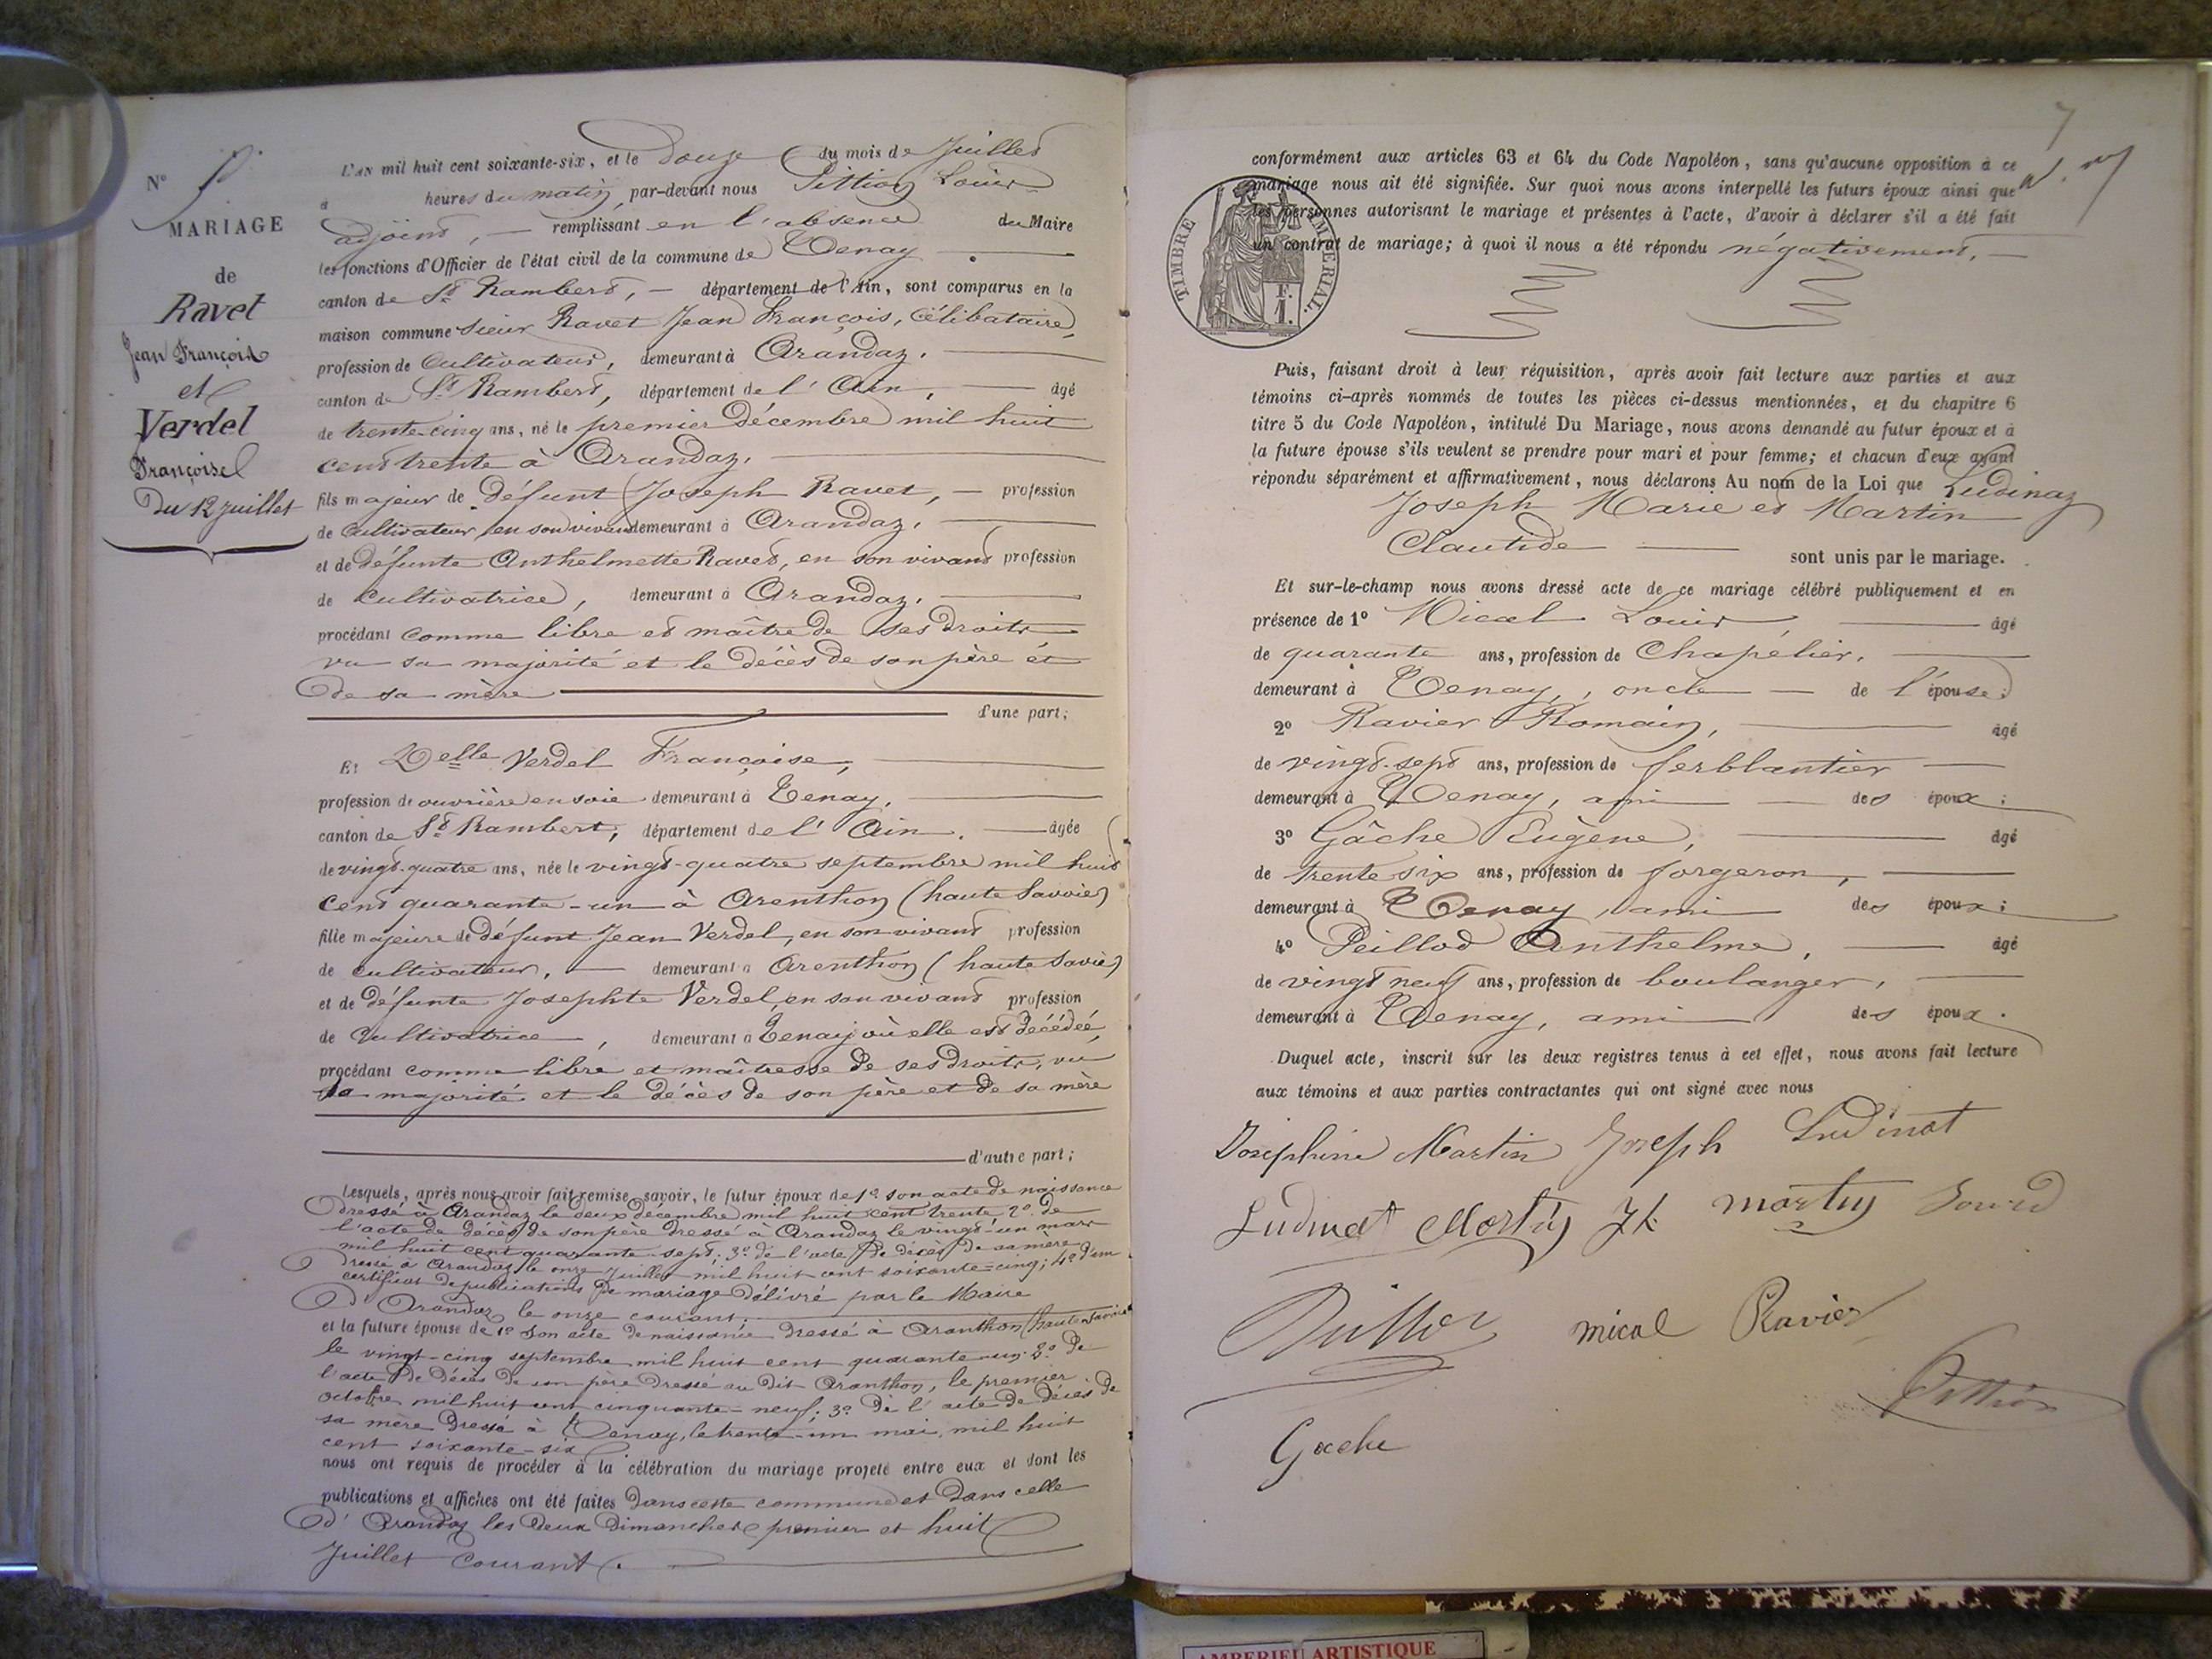 N° 8
MARIAGE
de
Ravet
Jean François
et
Verdel
Françoise
Du 12 juillet
L'AN mil huit cent soixante-six, et le Douze du mois de Juillet
à heures du matin, par-devant nous Pittion Louis
adjoint, — remplissant en l'absence du Maire
les fonctions d'Officier de l'état civil de la commune de Tenay
canton de St Rambert, — département de l'Ain, sont comparus en la
maison commune sieur Ravet Jean François, célibataire,
profession de Cultivateur, demeurant à Arandaz.
canton de St Rambert, département de l'Ain, — âgé
de trente-cinq ans, né le premier Décembre mil huit
cent trente à Arandaz.
fils majeur de défunt Joseph Ravet, — profession
de Cultivateur en son vivant demeurant à Arandaz.
et de défunte Anthelmette Ravet, en son vivant profession
de Cultivatrice, demeurant à Arandaz.
procédant comme libre et maître de ses droits
vu sa majorité et le décès de son père et
de sa mère
d'une part;
Et Delle Verdel Françoise,
profession de ouvrière en soie demeurant à Tenay.
canton de St Rambert, département de l'Ain. — âgée
de vingt-quatre ans, née le vingt-quatre septembre mil huit
cent quarante-un à Arenthon (haute Savoie)
fille majeure de défunt Jean Verdel, en son vivant profession
de cultivateur, — demeurant à Arenthon (haute Savoie)
et de défunte Josephte Verdel, en son vivant profession
de Cultivatrice, demeurant à Tenay où elle est décédée,
procédant comme libre et maîtresse de ses droits, vu
sa majorité et le décès de son père et de sa mère
d'autre part;
Lesquels, après nous avoir fait remise, savoir, le futur époux de 1° son acte de naissance
Dressé à Arandaz le deux décembre mil huit cent trente 2° de
l'acte de décès de son père dressé à Arandaz le vingt-un mars
mil huit cent quarante-sept; 3° de l'acte de décès de sa mère
dressé à Arandaz le onze juillet mil huit cent soixante-cinq; 4° d'un
certificat de publications de mariage délivré par le Maire
d'Arandaz le onze courant.
et la future épouse de 1° son acte de naissance dressé à Aranthon (haute Savoie)
le vingt-cinq septembre mil huit cent quarante-un; 2° de
l'acte de décès de son père dressé au dit Aranthon, le premier
octobre mil huit cent cinquante-neuf; 3° de l'acte de décès de
sa mère dressé à Tenay, le trente-un mai mil huit
cent soixante-six
nous ont requis de procéder à la célébration du mariage projeté entre eux et dont les
publications et affiches ont été faites dans cette commune et dans celle
d'Arandaz les deux Dimanches premier et huit
Juillet courant.
7
conformément aux articles 63 et 64 du Code Napoléon, sans qu'aucune opposition à ce
mariage nous ait été signifiée. Sur quoi nous avons interpellé les futurs époux ainsi que
les personnes autorisant le mariage et présentes à l'acte, d'avoir à déclarer s'il a été fait
un contrat de mariage; à quoi il nous a été répondu négativement, —
TIMBRE IMPÉRIAL.
1 F.
Puis, faisant droit à leur réquisition, après avoir fait lecture aux parties et aux
témoins ci-après nommés de toutes les pièces ci-dessus mentionnées, et du chapitre 6
titre 5 du Code Napoléon, intitulé Du Mariage, nous avons demandé au futur époux et à
la future épouse s'ils veulent se prendre pour mari et pour femme; et chacun d'eux ayant
répondu séparément et affirmativement, nous déclarons Au nom de la Loi que Ludinaz
Joseph Marie et Martin
Clautide — sont unis par le mariage.
Et sur-le-champ nous avons dressé acte de ce mariage célébré publiquement et en
présence de 1° Micael Louis, — âgé
de quarante ans, profession de Chapélier.
demeurant à Tenay, oncle — de l'épouse;
2° Ravier Romain, — âgé
de vingt-sept ans, profession de ferblantier
demeurant à Tenay, ami — des époux;
3° Gâche Eugène, — âgé
de trente six ans, profession de forgeron,
demeurant à Tenay, ami des époux;
4° Peillod Anthelme, — âgé
de vingt neuf ans, profession de boulanger,
demeurant à Tenay, ami des époux.
Duquel acte, inscrit sur les deux registres tenus à cet effet, nous avons fait lecture
aux témoins et aux parties contractantes qui ont signé avec nous
Joséphine Martin Joseph Ludinat
Ludinat Martin martin
mical Ravier
Pittion
Gache
AMBERIEU ARTISTIQUE